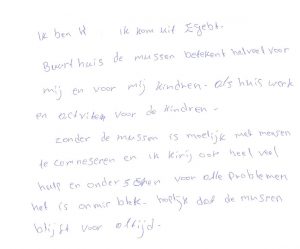 Ik ben H ik kom uit Egebt.
Buurthuis de mussen betekent helveel voor
mij en voor mij kindren. als huis werk
en activites voor de kindren.
zonder de mussen is moelijk met mensen
te comneseren en ik krij ook heel veel
hulp en onder voor alle problemen
het is onmir blek. hoplijk dat de mussen
blijft voor altijd.